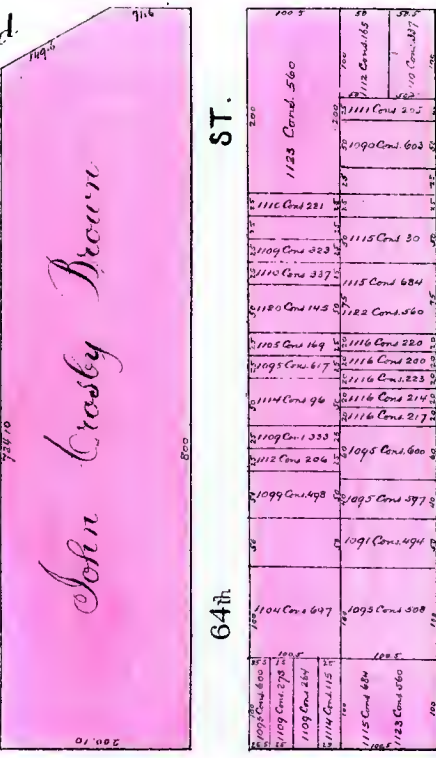 d
149.6
71.6
John Crosby Brown
724.10
800
200.10
64th ST.
100.5
200
1123 Cons. 560
200
111[?] Cons 221
1109 Cons 323
1110 Cons 337
1120 Cons 145
1105 Cons 169
1095 Cons. 617
1114 Cons 96
1109 Cons 333
1112 Cons 206
1099 Cons. 498
1104 Cons 697
100.5
1095 Cons 600
1109 Cons. 278
1109 Cons 264
1114 Cons 115
50
50.5
100
1112 Cons. 165
1110 Cons. 337
1111 Cons 205
1090 Cons. 603
1115 Cons 30
1115 Cons 684
1122 Cons. 560
1116 Cons 220
1116 Cons 200
1116 Cons. 223
1116 Cons 214
1116 Cons 217
1095 Cons. 600
1095 Cons 597
1091 Cons. 494
1095 Cons 508
100.5
1115 Cons 684
1123 Cons 560
100
100.5